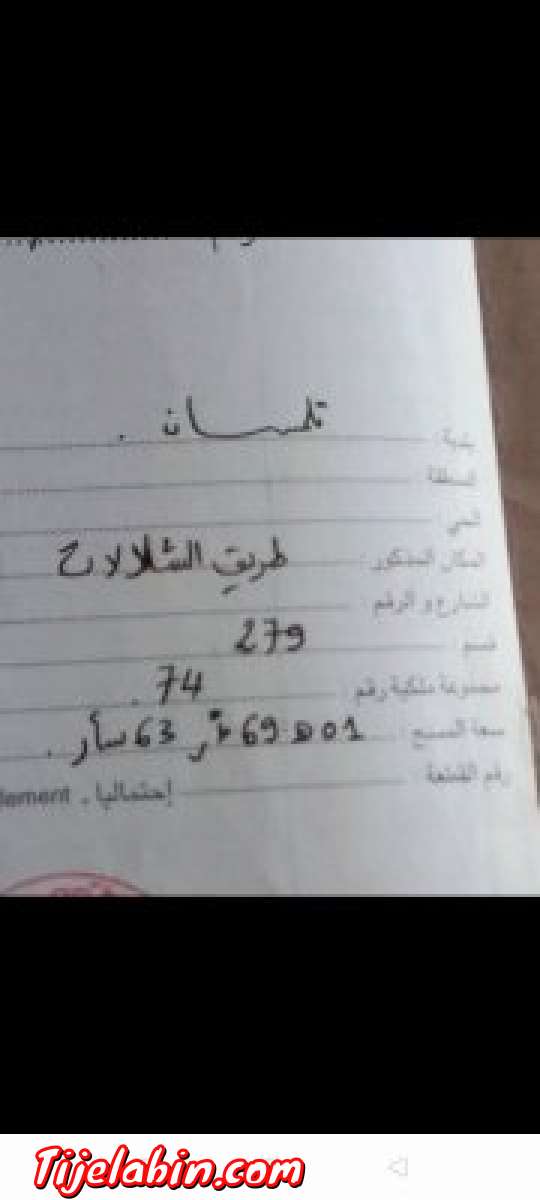 بلدية : تلمسان .
المنطقة :
الحي :
المكان المذكور : طريق الشلالات
الشارع و الرقم :
قسم : 279
مجموعة ملكية رقم : 74 .
سعة المسح : 01 ه 69 آر 63 سآر .
رقم القطعة :
إحتماليا . lement
Tijelabin.com